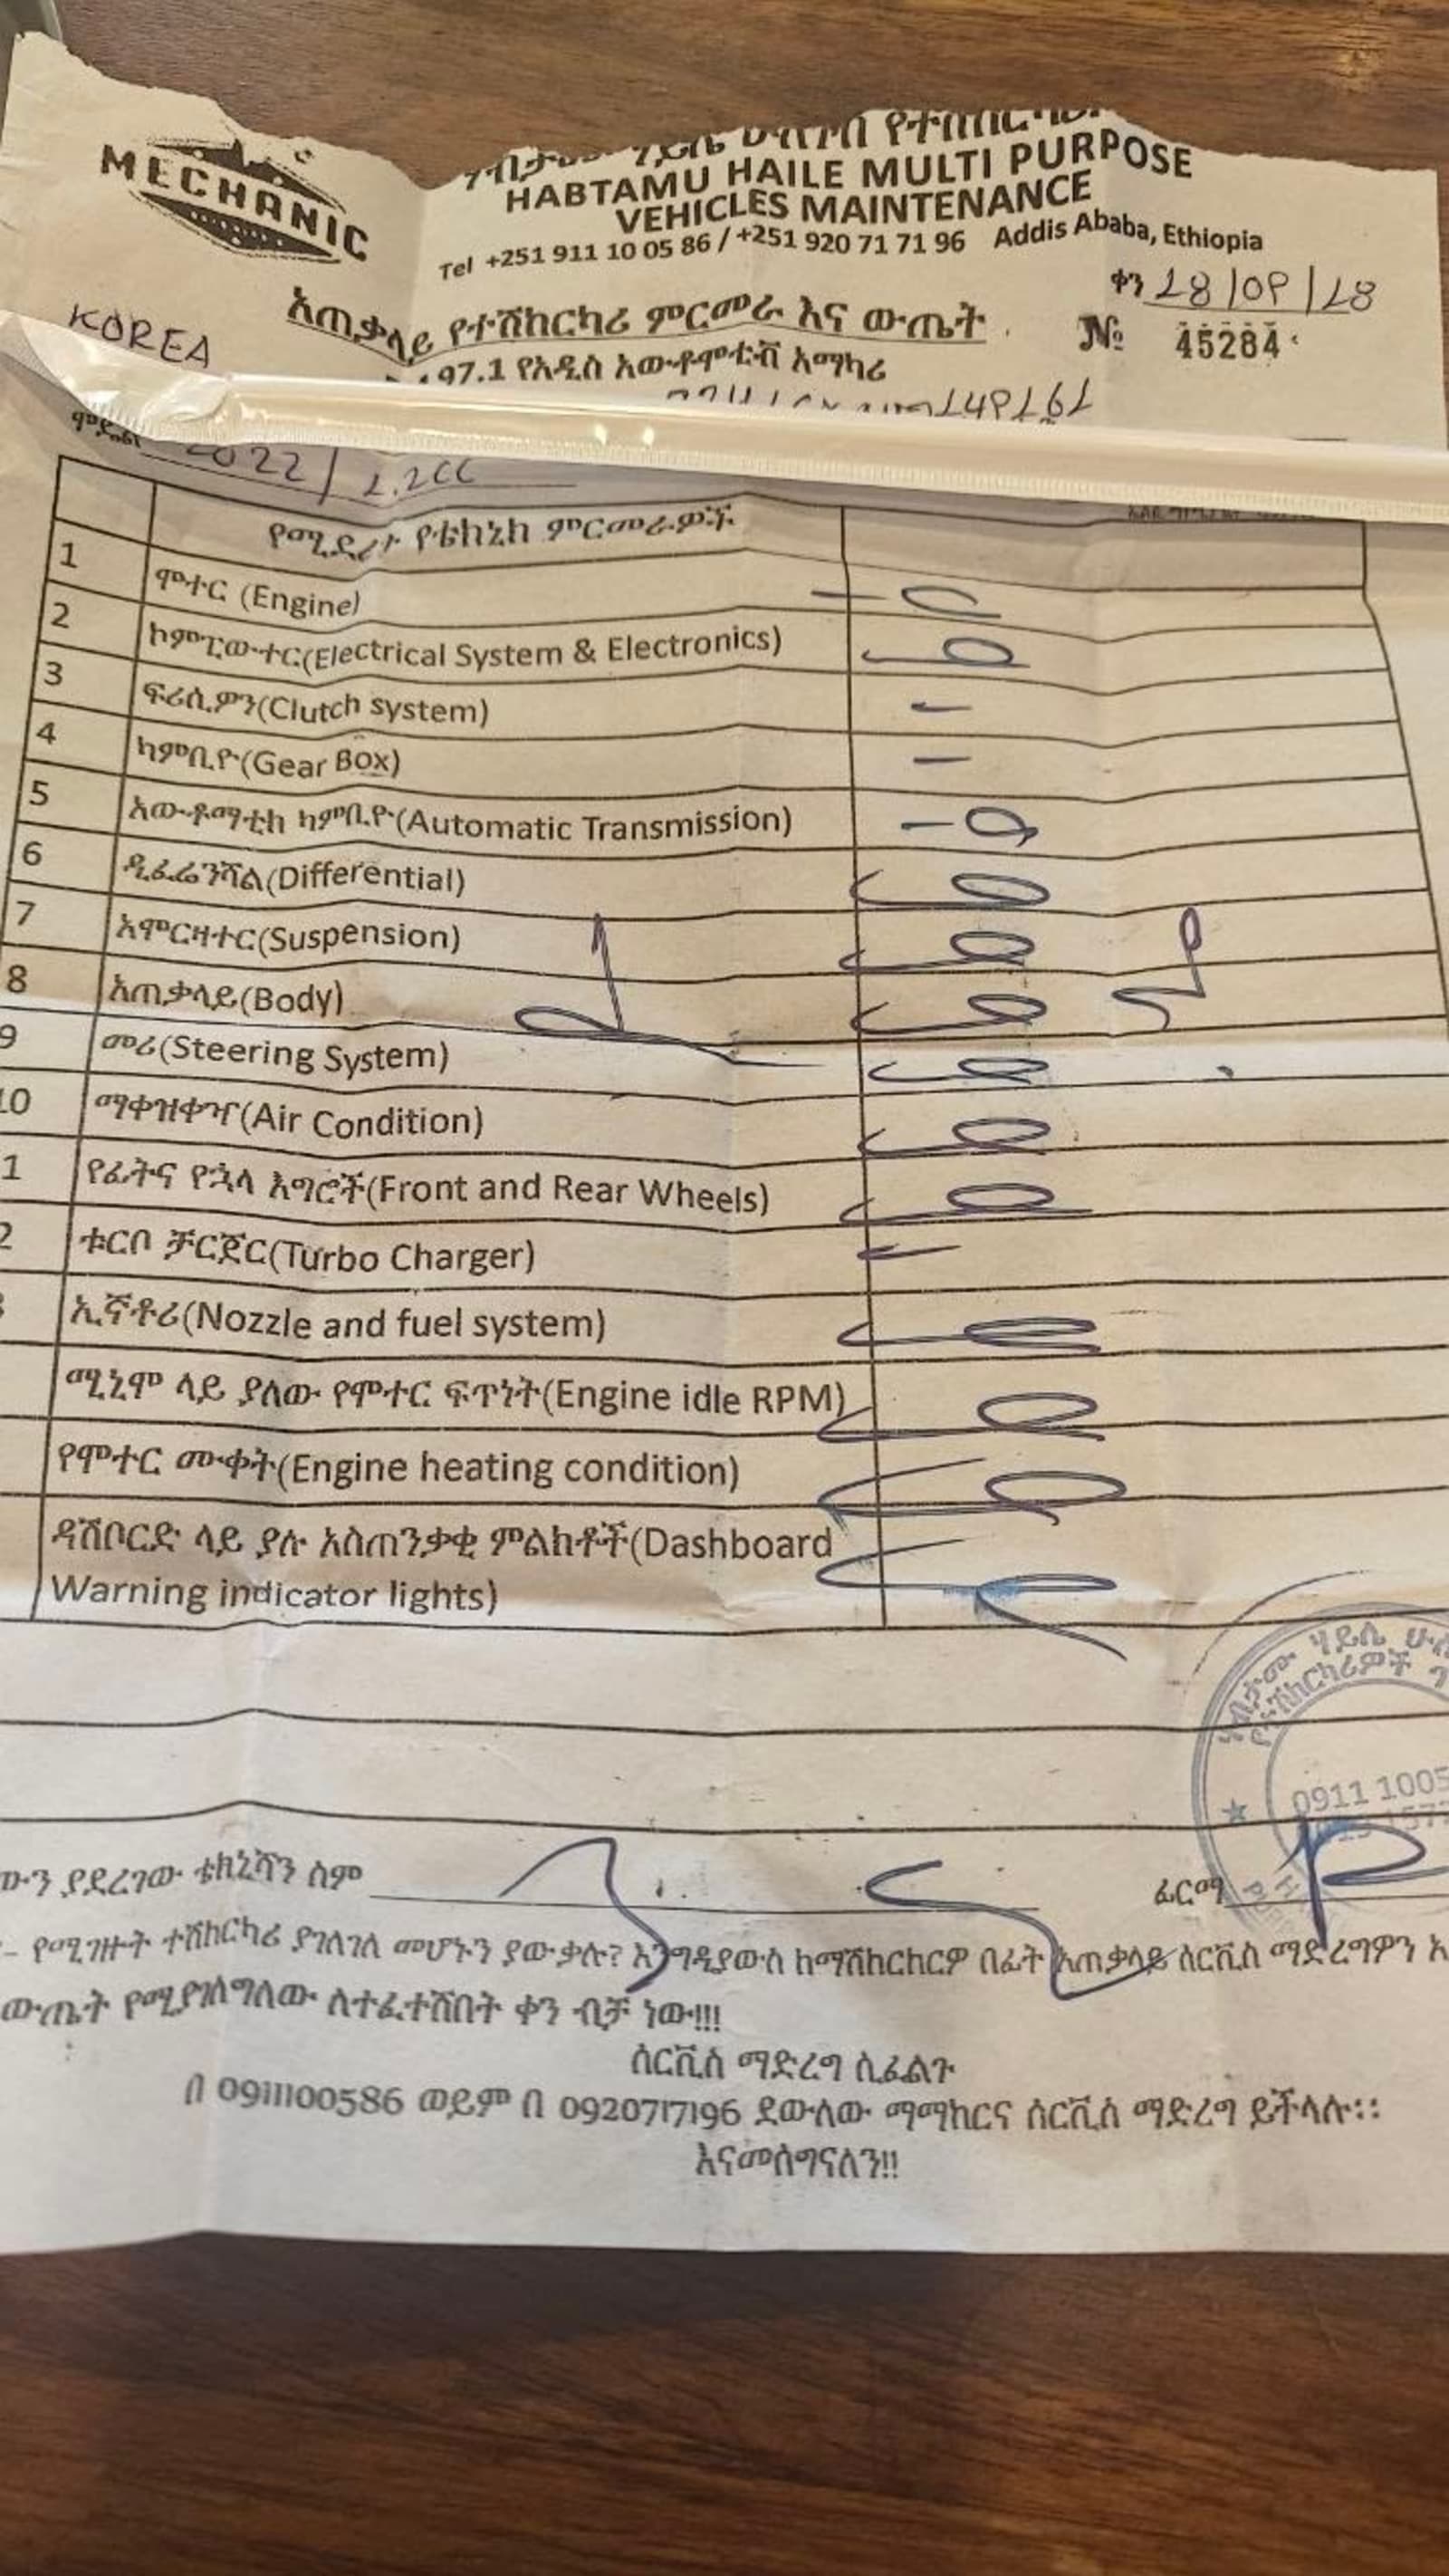 MECHANIC
HABTAMU HAILE MULTI PURPOSE
VEHICLES MAINTENANCE
Tel +251 911 10 05 86 / +251 920 71 71 96 Addis Ababa, Ethiopia
ቀን
KOREA
አጠቃላይ የተሽከርካሪ ምርመራ እና ውጤት
№ 45284
97.1 የአዲስ አውቶሞቲቭ አማካሪ
ሞዴል 2022/
የሚደረጉ የቴክኒክ ምርመራዎች
1 ሞተር (Engine)
2 ኮምፒውተር(Electrical System & Electronics)
3 ፍሪሲዎን(Clutch system)
4 ካምቢዮ(Gear Box)
5 አውቶማቲክ ካምቢዮ(Automatic Transmission)
6 ዲፈሬንሻል(Differential)
7 አሞርዛተር(Suspension)
8 አጠቃላይ(Body)
9 መሪ(Steering System)
10 ማቀዝቀዣ(Air Condition)
1 የፊትና የኋላ እግሮች(Front and Rear Wheels)
2 ቱርቦ ቻርጀር(Turbo Charger)
ኢኛቶሪ(Nozzle and fuel system)
ሚኒሞ ላይ ያለው የሞተር ፍጥነት(Engine idle RPM)
የሞተር ሙቀት(Engine heating condition)
ዳሽቦርድ ላይ ያሉ አስጠንቃቂ ምልክቶች(Dashboard
Warning indicator lights)
ሃብታሙ ሃይሌ
የተሽከርካሪዎች
0911 1005
ያደረገው ቴክኒሻን ስም
ፊርማ
የሚገዙት ተሽከርካሪ ያገለገለ መሆኑን ያውቃሉ? እንግዲያውስ ከማሽከርከርዎ በፊት አጠቃላይ ሰርቪስ ማድረግዎን
ውጤት የሚያገለግለው ለተፈተሸበት ቀን ብቻ ነው!!!
ሰርቪስ ማድረግ ሲፈልጉ
በ 0911100586 ወይም በ 0920717196 ደውለው ማማከርና ሰርቪስ ማድረግ ይችላሉ::
እናመሰግናለን!!